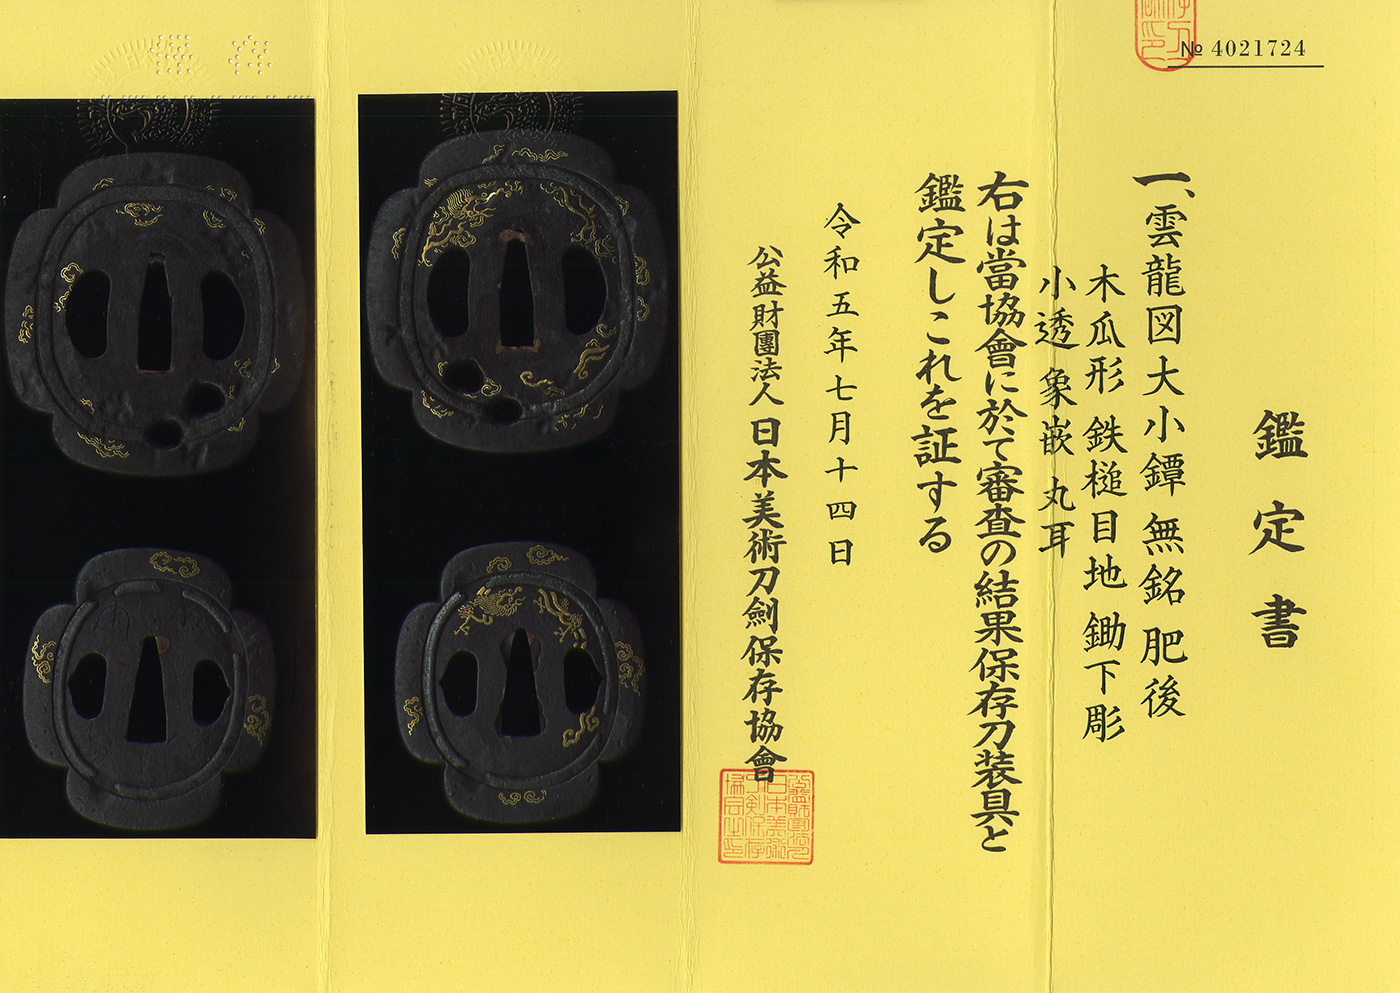 № 4021724
鑑定書
一、雲龍図大小鐔 無銘 肥後
木瓜形 鉄槌目地 鋤下彫
小透 象嵌 丸耳
右は當協會に於て審査の結果保存刀装具と
鑑定しこれを証する
令和五年七月十四日
公益財團法人 日本美術刀劍保存協會